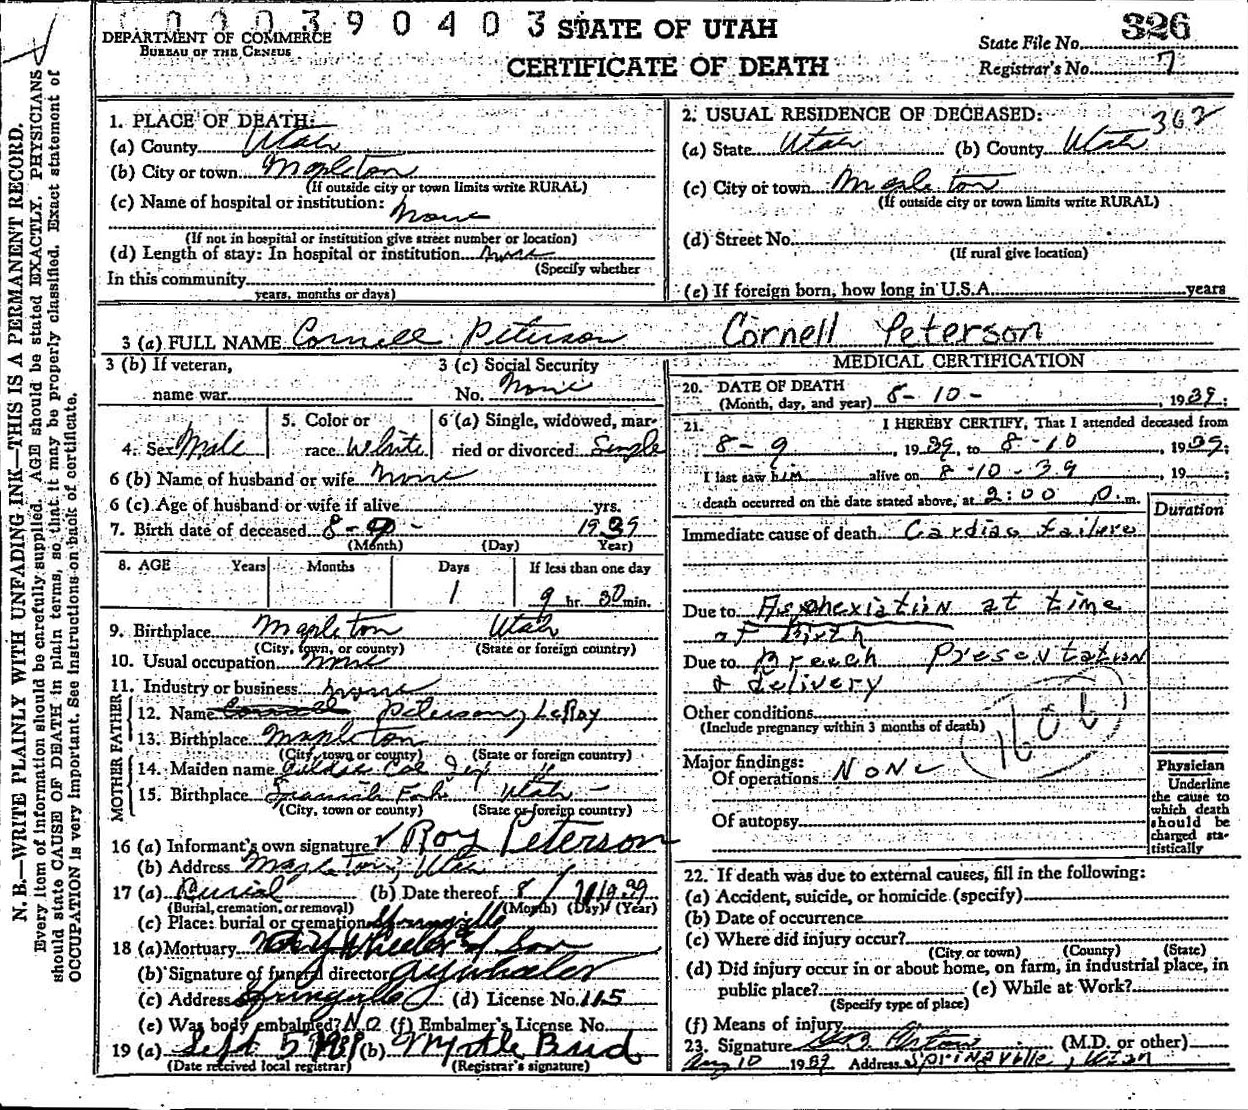 000390403
DEPARTMENT OF COMMERCE
BUREAU OF THE CENSUS
STATE OF UTAH
CERTIFICATE OF DEATH
State File No. 326
Registrar's No. 7
N. B.—WRITE PLAINLY WITH UNFADING INK—THIS IS A PERMANENT RECORD.
Every item of information should be carefully supplied. AGE should be stated EXACTLY. PHYSICIANS
should state CAUSE OF DEATH in plain terms, so that it may be properly classified. Exact statement of
OCCUPATION is very important. See instructions on back of certificate.
1. PLACE OF DEATH:
(a) County Utah
(b) City or town Mapleton
(If outside city or town limits write RURAL)
(c) Name of hospital or institution:
None
(If not in hospital or institution give street number or location)
(d) Length of stay: In hospital or institution None
(Specify whether
In this community
years, months or days)
2. USUAL RESIDENCE OF DECEASED: 362
(a) State Utah (b) County Utah
(c) City or town Mapleton
(If outside city or town limits write RURAL)
(d) Street No.
(If rural give location)
(e) If foreign born, how long in U.S.A. years
3 (a) FULL NAME Cornell Peterson Cornell Peterson
3 (b) If veteran,
name war
3 (c) Social Security
No. None
4. Sex Male
5. Color or
race White
6 (a) Single, widowed, mar-
ried or divorced Single
6 (b) Name of husband or wife None
6 (c) Age of husband or wife if alive yrs.
7. Birth date of deceased 8-9- 1939
(Month) (Day) Year)
8. AGE Years Months Days If less than one day
1 9 hr. 30 min.
9. Birthplace Mapleton Utah
(City, town, or county) (State or foreign country)
10. Usual occupation None
11. Industry or business None
FATHER
12. Name Cornell Peterson, LeRoy
13. Birthplace Mapleton
(City, town or county) (State or foreign country)
MOTHER
14. Maiden name
15. Birthplace Spanish Fork Utah
(City, town or county) (State or foreign country)
16 (a) Informant's own signature Roy Peterson
(b) Address Mapleton, Utah
17 (a) Burial (b) Date thereof 8/11/1939
(Burial, cremation, or removal) (Month) (Day) (Year)
(c) Place: burial or cremation Springville
18 (a) Mortuary Wheeler & Son
(b) Signature of funeral director A Y Wheeler
(c) Address Springville (d) License No. 115
(e) Was body embalmed? No (f) Embalmer's License No.
19 (a) Sept 5 1939 (b) Myrtle Bird
(Date received local registrar) (Registrar's signature)
MEDICAL CERTIFICATION
20. DATE OF DEATH
(Month, day, and year) 8-10- , 1939;
21. I HEREBY CERTIFY, That I attended deceased from
8-9 , 1939, to 8-10 , 1939;
I last saw him alive on 8-10-39 , 19 ;
death occurred on the date stated above, at 2:00 P. m.
Duration
Immediate cause of death Cardiac failure
Due to Asphexiation at time
of Birth
Due to Breech Presentation
& delivery
Other conditions
(Include pregnancy within 3 months of death)
160b
Major findings:
Of operations None
Of autopsy
Physician
Underline
the cause to
which death
should be
charged sta-
tistically
22. If death was due to external causes, fill in the following:
(a) Accident, suicide, or homicide (specify)
(b) Date of occurrence
(c) Where did injury occur?
(City or town) (County) (State)
(d) Did injury occur in or about home, on farm, in industrial place, in
public place? (e) While at Work?
(Specify type of place)
(f) Means of injury
23. Signature Orton (M.D. or other)
Aug 10 1939 Address Springville, Utah